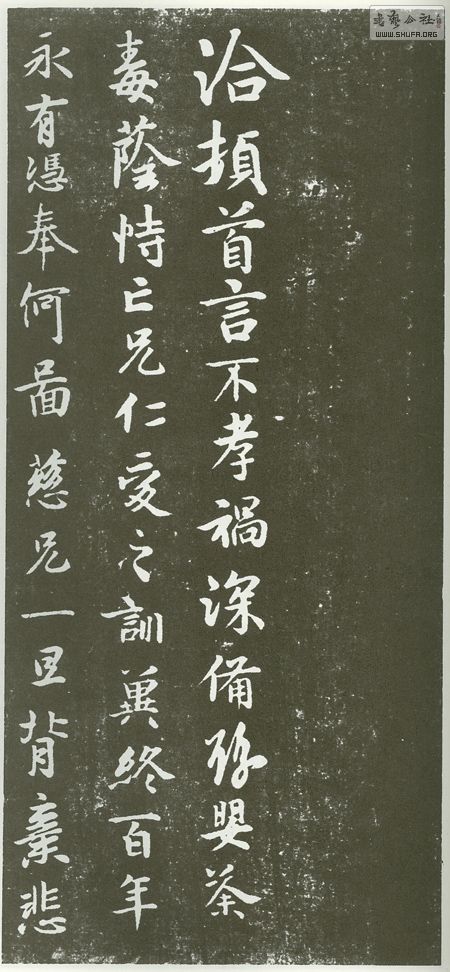 書藝公社
WWW.SHUFA.ORG
洽頓首言不孝禍深備豫嬰荼
毒蔭恃亡兄仁愛之訓冀終百年
永有憑奉何圖慈兄一旦背棄悲